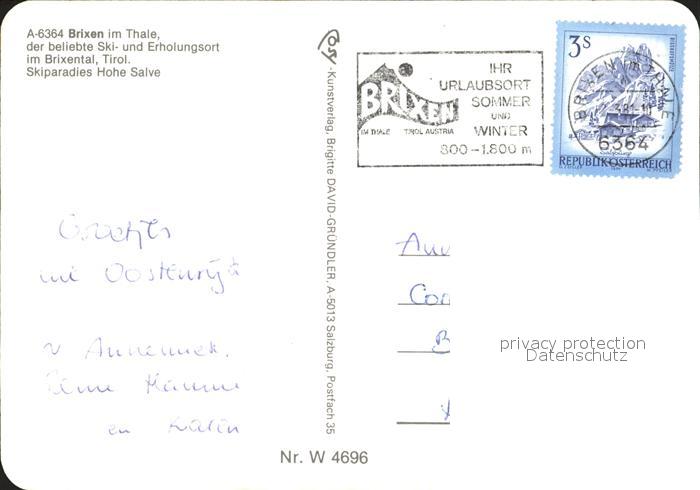 A-6364 Brixen im Thale,
der beliebte Ski- und Erholungsort
im Brixental, Tirol.
Skiparadies Hohe Salve
Cosy - Kunstverlag, Brigitte DAVID-GRÜNDLER, A-5013 Salzburg, Postfach 35
BRIXEN
IM THALE TIROL AUSTRIA
IHR
URLAUBSORT
SOMMER
UND
WINTER
800-1.800 m
3S
BRIXEN IM THALE
6364
REPUBLIK ÖSTERREICH
Groetjes
en Karin
privacy protection
Datenschutz
Nr. W 4696